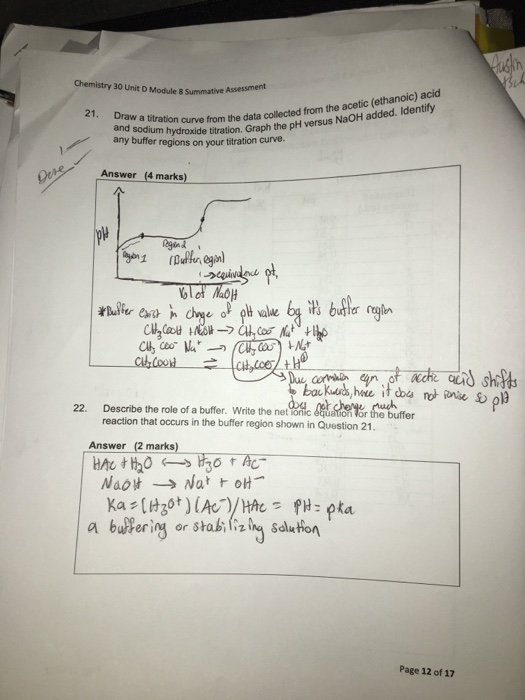 Austin
Chemistry 30 Unit D Module 8 Summative Assessment
21. Draw a titration curve from the data collected from the acetic (ethanoic) acid
and sodium hydroxide titration. Graph the pH versus NaOH added. Identify
any buffer regions on your titration curve.
Done
Answer (4 marks)
pH
Region 1
Region 2
(Buffer region)
→ equivalence pt.
Vol of NaOH
*Buffer exist in chnge of pH value by it's buffer region
CH₃COOH + NaOH → CH₃COO⁻ Na⁺ + H₂O
CH₃COO⁻ Na⁺ → CH₃COO⁻ + Na⁺
CH₃COOH ⇌ CH₃COO⁻ + H⊕
→ Due common eqn of acetic acid shifts
to backwards, hence it does not ionise so pH
does not change much
22. Describe the role of a buffer. Write the net ionic equation for the buffer
reaction that occurs in the buffer region shown in Question 21.
Answer (2 marks)
HAc + H₂O ⟷ H₃O + Ac⁻
NaOH → Na⁺ + OH⁻
Ka = [H₃O⁺)(Ac⁻)/HAc = PH = pKa
a buffering or stabilizing solution
Page 12 of 17